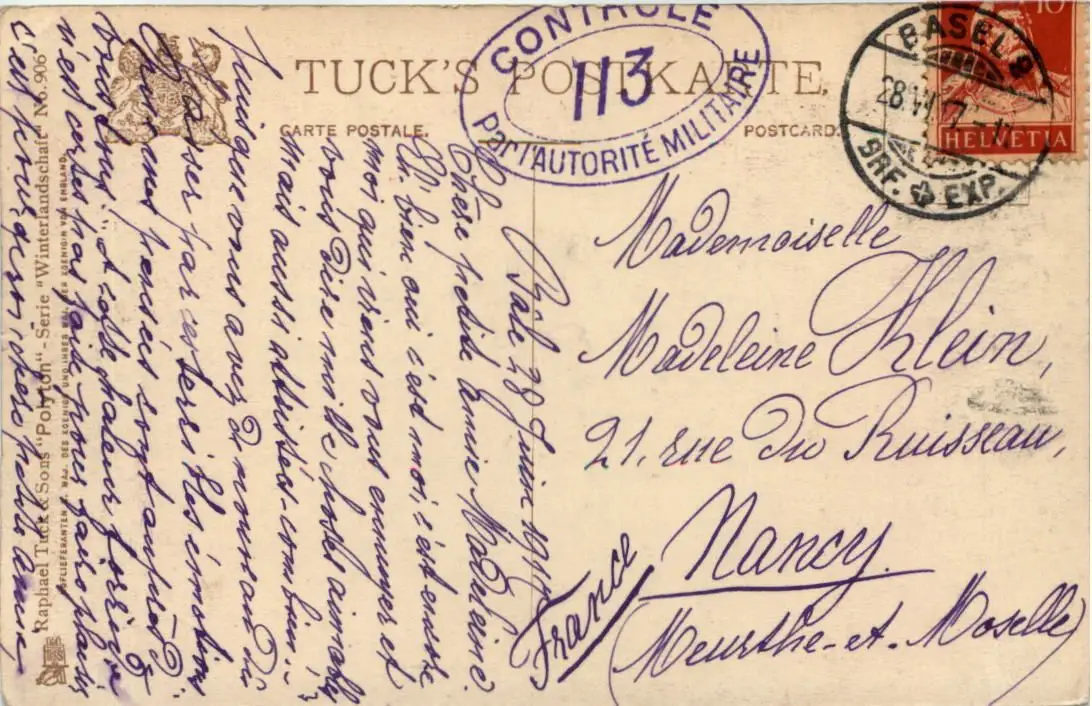 TUCK'S POSTKARTE.
CARTE POSTALE.
POSTCARD.
CONTROLE
113
Par l'AUTORITÉ MILITAIRE
10
HELVETIA
BASEL 2
28 VI 17 - 11
BRF. EXP.
Mademoiselle
Madeleine Klein,
21, rue du Ruisseau,
Nancy.
France
(Meurthe-et-Moselle)
Bâle 28 Juin 1917
Chère petite Amie Madeleine.
Eh bien oui c'est moi, c'est encore
moi qui viens vous ennuyer et
vous dire mille choses aimables
mais aussi attristées - combien..
puisque vous avez de nouveau dû
passer par ces terribles émotions
et mes pensées sont auprès d
vous cette chaleur
n'est certes pas faite pour
c'est pour ma chère petite amie
Raphael Tuck & Sons "Polyton" - Serie "Winterlandschaft" No. 906
HOFLIEFERANTEN I. MAJ. DES KOENIGS UND IHRER MAJ. DER KOENIGIN VON ENGLAND.